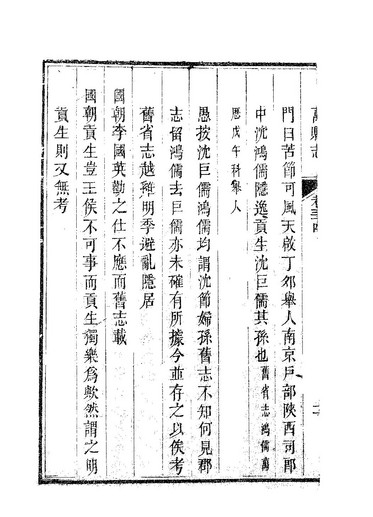 萬縣志
門曰苦節可風天啟丁卯舉人南京戶部陝西司郎
中沈鴻儒隱逸貢生沈巨儒其孫也舊省志鴻儒萬
厯戊午科舉人
愚按沈巨儒鴻儒均謂沈節婦孫舊志不知何見郡
志留鴻儒去巨儒亦未確有所據今並存之以俟考
舊省志越雞明季避亂隱居
國朝李國英勸之仕不應而舊志載
國朝貢生豈王侯不可事而貢生獨樂為歟然謂之明
貢生則又無考